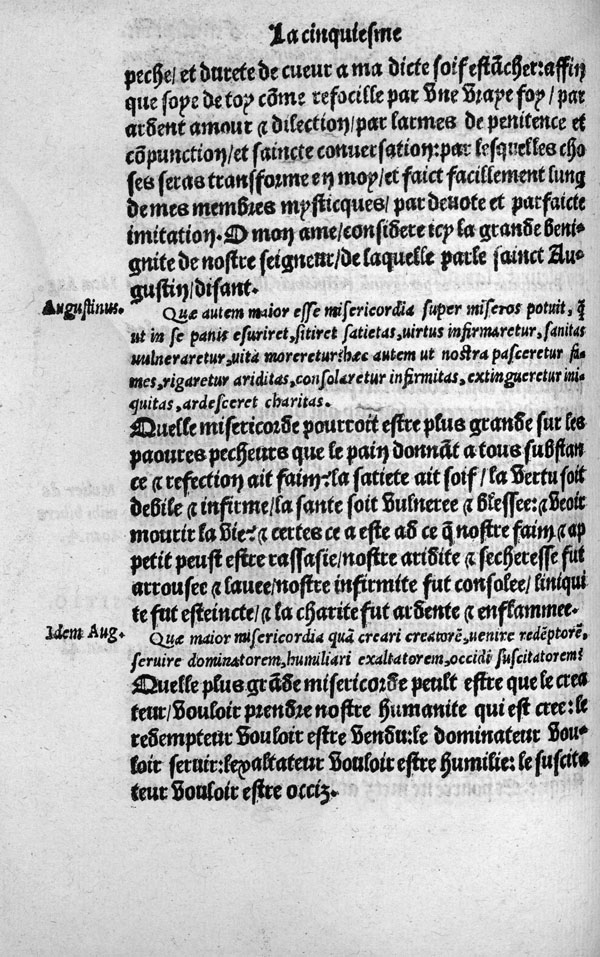 La cinquiesme
peche/ et durete de cueur a ma dicte soif estãcher: affin
que soye de toy cõme refocille par vne vraye foy/ par
ardent amour ⁊ dilection/ par larmes de penitence et
cõpunction/ et saincte conuersation: par lesquelles cho
ses seras transforme en moy/ et faict facillement lung
de mes membres mysticques/ par deuote et parfaicte
imitation. O mon ame/ considere icy la grande beni-
gnite de nostre seigneur/ de laquelle parle sainct Au-
gustin/ disant.
Augustinus.
Quæ autem maior esse misericordia super miseros potuit, q̃
ut in se panis esuriret, sitiret satietas, uirtus infirmaretur, sanitas
uulneraretur, uita moreretur: hæc autem ut nostra pasceretur fa-
mes, rigaretur ariditas, consolaretur infirmitas, extingueretur ini-
quitas, ardesceret charitas.
Quelle misericorde pourroit estre plus grande sur les
paoures pecheurs que le pain donnãt a tous substan
ce ⁊ refection ait faim: la satiete ait soif/ la vertu soit
debile ⁊ infirme/ la sante soit vulneree ⁊ blessee: ⁊ veoir
mourir la vie? ⁊ certes ce a este ad ce q̃ nostre faim ⁊ ap
petit peust estre rassasie/ nostre aridite ⁊ secheresse fut
arrousee ⁊ lauee/ nostre infirmite fut consolee/ liniqui
te fut esteincte/ ⁊ la charite fut ardente ⁊ enflammee.
Idem Aug.
Quæ maior misericordia quã creari creatorẽ, uenire redẽptorẽ,
seruire dominatorem, humiliari exaltatorem, occidi suscitatorem?
Quelle plus grãde misericorde peult estre que le crea
teur/ vouloir prendre nostre humanite qui est cree: le
redempteur vouloir estre vendu: le dominateur vou-
loir seruir: lexaltateur vouloir estre humilie: le suscita
teur vouloir estre occiz.